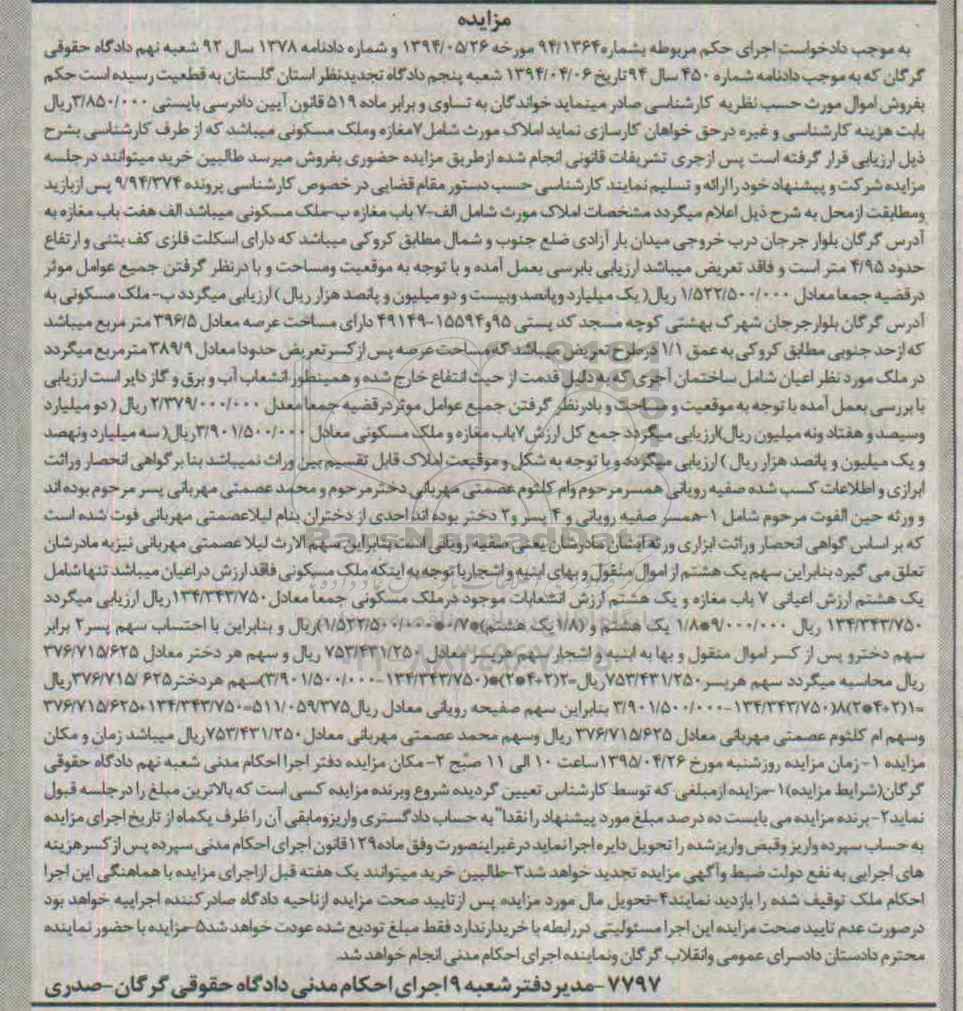 مزایده
به موجب دادخواست اجرای حکم مربوطه بشماره ۹۴/۱۳۶۴ مورخه ۱۳۹۴/۰۵/۲۶ و شماره دادنامه ۱۳۷۸ سال ۹۲ شعبه نهم دادگاه حقوقی
گرگان که به موجب دادنامه شماره ۴۵۰ سال ۹۴ تاریخ ۱۳۹۴/۰۴/۰۶ شعبه پنجم دادگاه تجدیدنظر استان گلستان به قطعیت رسیده است حکم
بفروش اموال مورث حسب نظریه کارشناسی صادر مینماید خواندگان به تساوی و برابر ماده ۵۱۹ قانون آیین دادرسی بایستی ۳/۸۵۰/۰۰۰ ریال
بابت هزینه کارشناسی و غیره درحق خواهان کارسازی نماید املاک مورث شامل ۷مغازه وملک مسکونی میباشد که از طرف کارشناسی بشرح
ذیل ارزیابی قرار گرفته است پس ازجری تشریفات قانونی انجام شده ازطریق مزایده حضوری بفروش میرسد طالبین خرید میتوانند درجلسه
مزایده شرکت و پیشنهاد خود را ارائه و تسلیم نمایند کارشناسی حسب دستور مقام قضایی در خصوص کارشناسی پرونده ۹/۹۴/۳۷۴ پس ازبازید
ومطابقت ازمحل به شرح ذیل اعلام میگردد مشخصات املاک مورث شامل الف-۷ باب مغازه ب-ملک مسکونی میباشد الف هفت باب مغازه به
آدرس گرگان بلوار جرجان درب خروجی میدان بار آزادی ضلع جنوب و شمال مطابق کروکی میباشد که دارای اسکلت فلزی کف بتنی و ارتفاع
حدود ۴/۹۵ متر است و فاقد تعریض میباشد ارزیابی بابرسی بعمل آمده و با توجه به موقعیت ومساحت و با درنظر گرفتن جمیع عوامل موثر
درقضیه جمعا معادل ۱/۵۲۲/۵۰۰/۰۰۰ ریال( یک میلیارد وپانصد وبیست و دو میلیون و پانصد هزار ریال ) ارزیابی میگردد ب- ملک مسکونی به
آدرس گرگان بلوارجرجان شهرک بهشتی کوچه مسجد کد پستی ۹۵و۱۵۵۹۴-۴۹۱۴۹ دارای مساحت عرصه معادل ۳۹۶/۵ متر مربع میباشد
که ازحد جنوبی مطابق کروکی به عمق ۱/۱ درطرح تعریض میباشد که مساحت عرصه پس ازکسرتعریض حدودا معادل ۳۸۹/۹ مترمربع میگردد
در ملک مورد نظر اعیان شامل ساختمان آجری که به دلیل قدمت از حیث انتفاع خارج شده و همینطور انشعاب آب و برق و گاز دایر است ارزیابی
با بررسی بعمل آمده با توجه به موقعیت و مساحت و بادرنظر گرفتن جمیع عوامل موثردرقضیه جمعا معدل ۲/۳۷۹/۰۰۰/۰۰۰ ریال ( دو میلیارد
وسیصد و هفتاد ونه میلیون ریال)ارزیابی میگردد جمع کل ارزش ۷باب مغازه و ملک مسکونی معادل ۳/۹۰۱/۵۰۰/۰۰۰ریال( سه میلیارد ونهصد
و یک میلیون و پانصد هزار ریال ) ارزیابی میگردد و با توجه به شکل و موقیعت املاک قابل تقسیم بین وراث نمیباشد بنا بر گواهی انحصار وراثت
ابرازی و اطلاعات کسب شده صفیه رویانی همسرمرحوم وام کلثوم عصمتی مهربانی دخترمرحوم و محمد عصمتی مهربانی پسر مرحوم بوده اند
و ورثه حین الفوت مرحوم شامل ۱-همسر صفیه رویانی و ۴ پسر و۲ دختر بوده اند احدی از دختران بنام لیلاعصمتی مهربانی فوت شده است
که بر اساس گواهی انحصار وراثت ابرازی ورثه ایشان مادرشان یعنی صفیه رویانی است بنابراین سهم الارث لیلا عصمتی مهربانی نیزبه مادرشان
تعلق می گیرد بنابراین سهم یک هشتم از اموال منقول و بهای ابنیه و اشجاربا توجه به اینکه ملک مسکونی فاقد ارزش دراعیان میباشد تنها شامل
یک هشتم ارزش اعیانی ۷ باب مغازه و یک هشتم ارزش انشعابات موجود درملک مسکونی جمعا معادل۱۳۴/۳۴۳/۷۵۰ ریال ارزیابی میگردد
۱۳۴/۳۴۳/۷۵۰ ریال ۹/۰۰۰/۰۰۰*۱/۸ یک هشتم و (۱/۸ یک هشتم)*۰/۷*(۱/۵۲۲/۵۰۰/۰۰۰ ریال و بنابراین با احتساب سهم پسر۲ برابر
سهم دخترو پس از کسر اموال منقول و بها به ابنیه و اشجار سهم هرپسر معادل ۷۵۳/۴۳۱/۲۵۰ ریال و سهم هر دختر معادل ۳۷۶/۷۱۵/۶۲۵
ریال محاسبه میگردد سهم هرپسر۷۵۳/۴۳۱/۲۵۰ریال=۲(۲+۴*۲)*(۱۳۴/۳۴۳/۷۵۰-۳/۹۰۱/۵۰۰/۰۰۰)سهم هردختر۳۷۶/۷۱۵/۶۲۵ریال
=۱(۲+۴*۲)۸(۱۳۴/۳۴۳/۷۵۰-۳/۹۰۱/۵۰۰/۰۰۰ بنابراین سهم صفیحه رویانی معادل ریال۵۱۱/۰۵۹/۳۷۵=۱۳۴/۳۴۳/۷۵۰+۳۷۶/۷۱۵/۶۲۵
وسهم ام کلثوم عصمتی مهربانی معادل ۳۷۶/۷۱۵/۶۲۵ ریال وسهم محمد عصمتی مهربانی معادل ۷۵۳/۴۳۱/۲۵۰ریال میباشد زمان و مکان
مزایده ۱- زمان مزایده روزشنبه مورخ ۱۳۹۵/۰۴/۲۶ساعت ۱۰ الی ۱۱ صبح ۲- مکان مزایده دفتر اجرا احکام مدنی شعبه نهم دادگاه حقوقی
گرگان(شرایط مزایده)۱-مزایده ازمبلغی که توسط کارشناس تعیین گردیده شروع وبرنده مزایده کسی است که بالاترین مبلغ را درجلسه قبول
نماید۲-برنده مزایده می بایست ده درصد مبلغ مورد پیشنهاد را نقدا" به حساب دادگستری واریزومابقی آن را ظرف یکماه از تاریخ اجرای مزایده
به حساب سپرده واریز وقبض واریزشده را تحویل دایره اجرا نماید درغیراینصورت وفق ماده۱۲۹قانون اجرای احکام مدنی سپرده پس ازکسرهزینه
های اجرایی به نفع دولت ضبط وآگهی مزایده تجدید خواهد شد۳-طالبین خرید میتوانند یک هفته قبل ازاجرای مزایده با هماهنگی این اجرا
احکام ملک توقیف شده را بازدید نمایند۴-تحویل مال مورد مزایده پس ازتایید صحت مزایده ازناحیه دادگاه صادرکننده اجراییه خواهد بود
درصورت عدم تایید صحت مزایده این اجرا مسئولیتی دررابطه با خریدارندارد فقط مبلغ تودیع شده عودت خواهد شد۵-مزایده با حضور نماینده
محترم دادستان دادسرای عمومی وانقلاب گرگان ونماینده اجرای احکام مدنی انجام خواهد شد.
۷۷۹۷-مدیر دفتر شعبه ۹ اجرای احکام مدنی دادگاه حقوقی گرگان-صدری